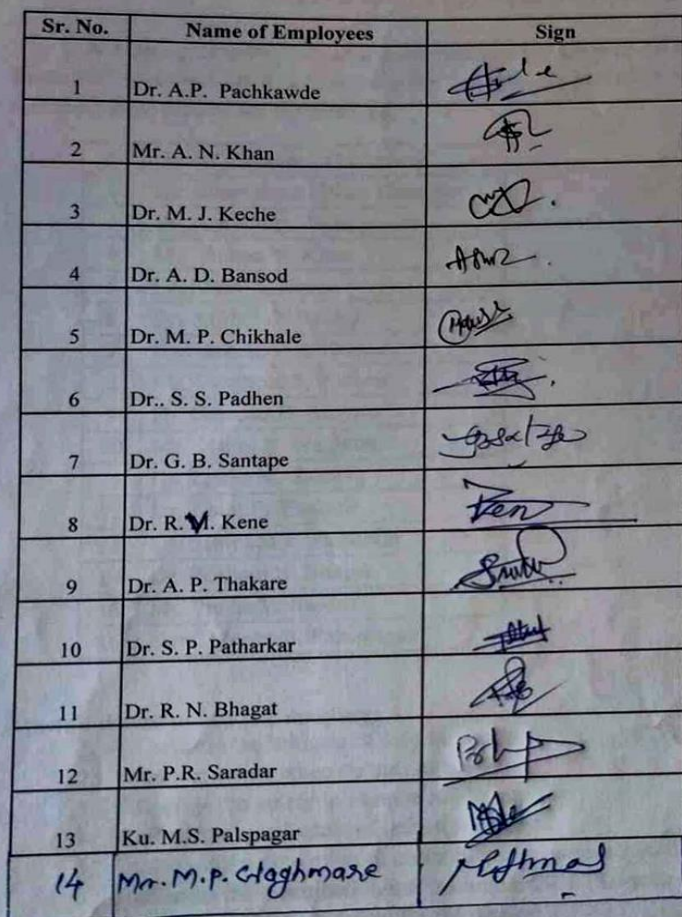 Sr. No. Name of Employees Sign
1 Dr. A.P. Pachkawde
2 Mr. A. N. Khan
3 Dr. M. J. Keche
4 Dr. A. D. Bansod
5 Dr. M. P. Chikhale
6 Dr.. S. S. Padhen
7 Dr. G. B. Santape
8 Dr. R. V. Kene
9 Dr. A. P. Thakare
10 Dr. S. P. Patharkar
11 Dr. R. N. Bhagat
12 Mr. P.R. Saradar
13 Ku. M.S. Palspagar
14 Mr. M.P. Waghmare